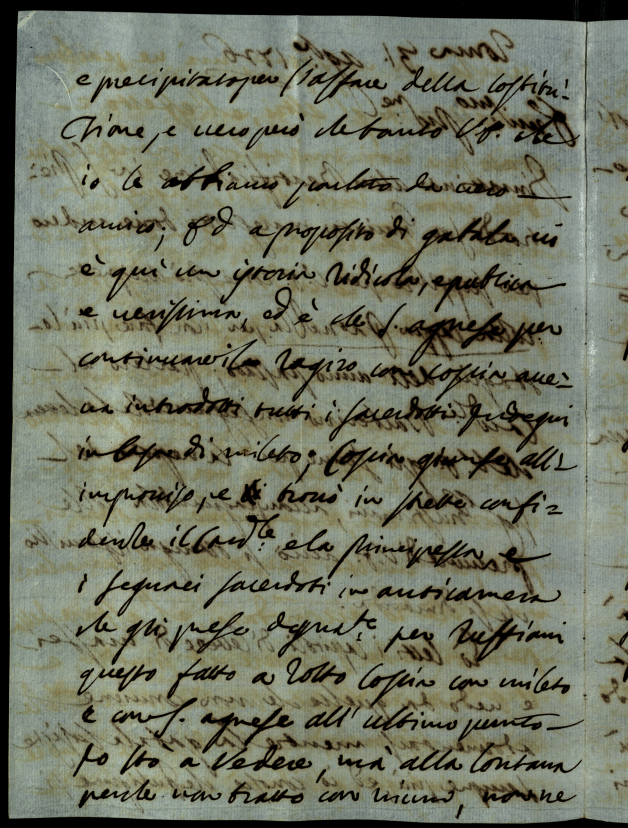 e precipitato per l'affare della Costitu=
zione, e vero però che tanto che
io le abbiamo parlato da vero
amico; Ed a proposito di gabala vi
è quì un istoria ridicola, e publica
e verissima, ed è che S. agnese per
continuare il ragiro con Coscia ave=
va introdotti tutti i sacerdoti
in casa di mileto; Coscia giunse all'
improviso, e trovò in strette confi=
denze il Card.le e la Principessa e
i seguaci sacerdoti in anticamera
che gli prese degnat.e per Ruffiani
questo fatto a rotto Coscia con mileto
e con S. agnese all' ultimo punto
Io sto a vedere, ma' alla lontana
perche non tratto con niuno, non ne